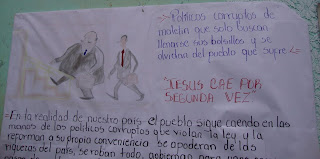 => Políticos corruptos de
maletin que solo buscan
llenarse sus bolsillos y se
olvidan del pueblo que sufre <=
"JESUS CAE POR
SEGUNDA VEZ"
=> En la realidad de nuestro país el pueblo sigue caendo en las
manos de los politicos corruptos que violan la ley y la
reforman a su propia conveniencia se apoderan de las
riquezas del país, se roban todo, gobiernan para unos